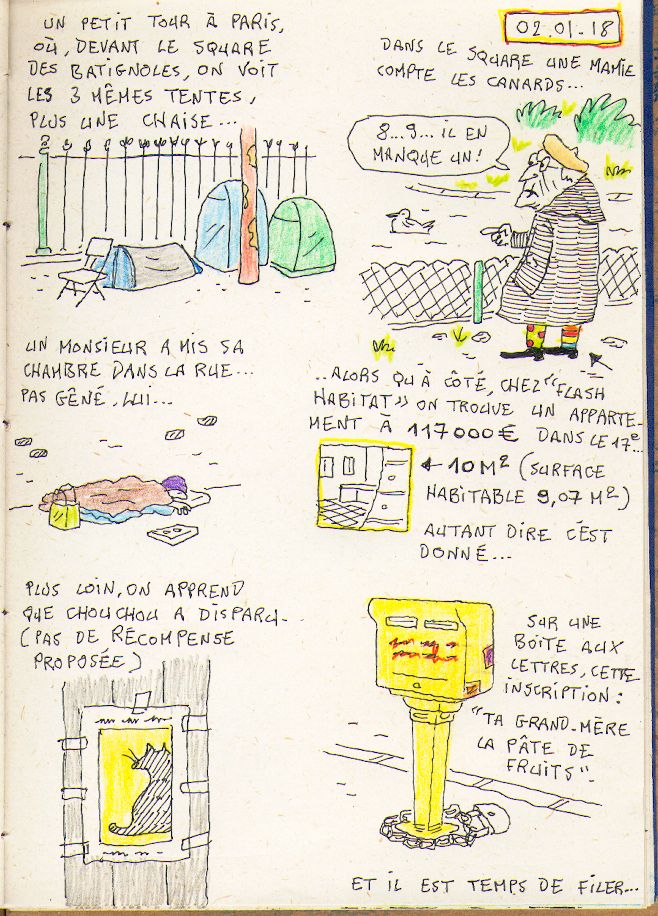 UN PETIT TOUR À PARIS,
OÙ, DEVANT LE SQUARE
DES BATIGNOLES, ON VOIT
LES 3 MÊMES TENTES,
PLUS UNE CHAISE...
02.01.18
DANS LE SQUARE UNE MAMIE
COMPTE LES CANARDS...
8...9... IL EN
MANQUE UN!
UN MONSIEUR A MIS SA
CHAMBRE DANS LA RUE...
PAS GÊNÉ, LUI...
...ALORS QU'À CÔTÉ, CHEZ "FLASH
HABITAT" ON TROUVE UN APPARTE-
MENT À 117000€ DANS LE 17e...
10M² (SURFACE
HABITABLE 9,07 M²)
AUTANT DIRE C'EST
DONNÉ...
PLUS LOIN, ON APPREND
QUE CHOUCHOU A DISPARU...
(PAS DE RÉCOMPENSE
PROPOSÉE)
SUR UNE
BOITE AUX
LETTRES, CETTE
INSCRIPTION:
"TA GRAND-MÈRE
LA PÂTE DE
FRUITS".
ET IL EST TEMPS DE FILER...